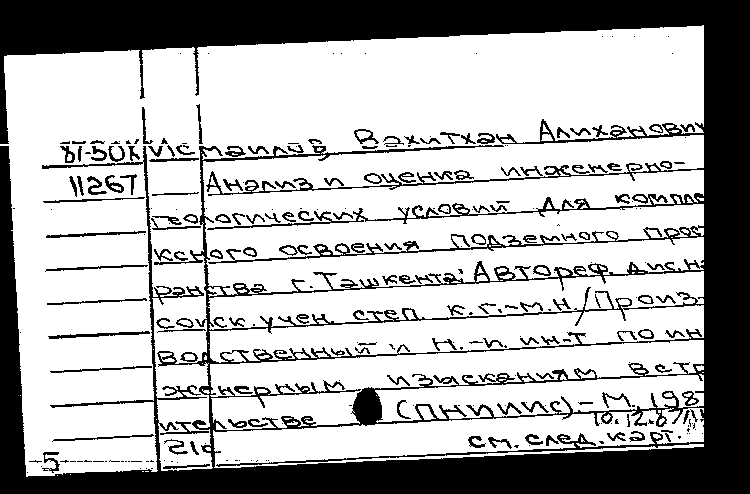 87-50К Исмаилов Вахитхан Алиханович
11267 Анализ и оценка инженерно-
геологических условий для компле
ксного освоения подземного прос
ранства г. Ташкента: Автореф. дис. н
соиск. учен. степ. к.г.-м.н./Произ-
водственный и н.-и. ин-т по ин
женерным изысканиям в стр
ительстве (ПНИИИС).- М. 198
10.12.87
21с см. след. карт.
5